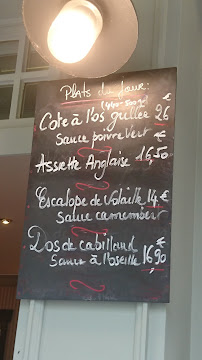 Plats du jour:
(400-500gr)
Côte à l'os grillée 26 €
Sauce poivre vert
Assiette Anglaise 16,50 €
Escalope de Volaille 14 €
Sauce camembert
Dos de cabillaud €
Sauce à l'oseille 16,90